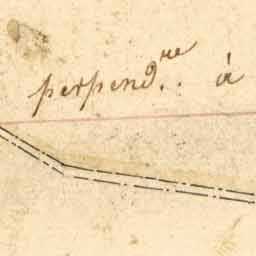 perpend.re à